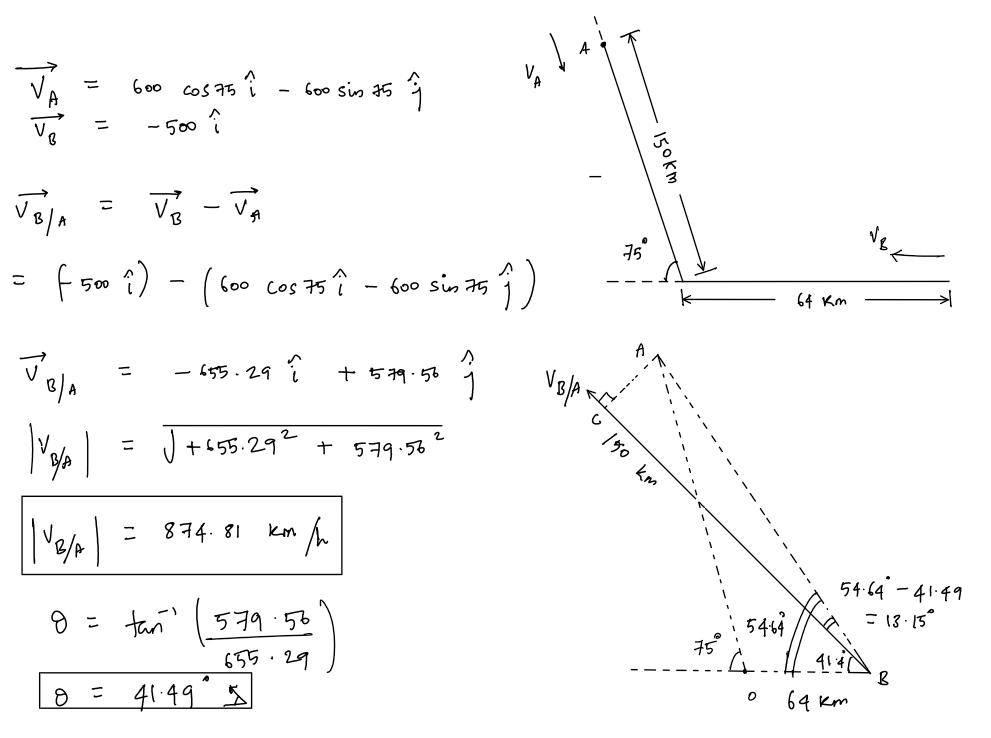 V_A = 600 cos 75 î - 600 sin 75 ĵ
V_B = -500 î
V_B/A = V_B - V_A
= (-500 î) - (600 cos 75 î - 600 sin 75 ĵ)
V_B/A = -655.29 î + 579.56 ĵ
|V_B/A| = √+655.29² + 579.56²
|V_B/A| = 874.81 km/h
θ = tan⁻¹ (579.56 / 655.29)
θ = 41.49°
A
V_A
150 KM
75°
V_B
64 KM
A
V_B/A
C
150 Km
54.64° - 41.49
= 13.15°
54.64°
75°
41.4°
B
O
64 Km